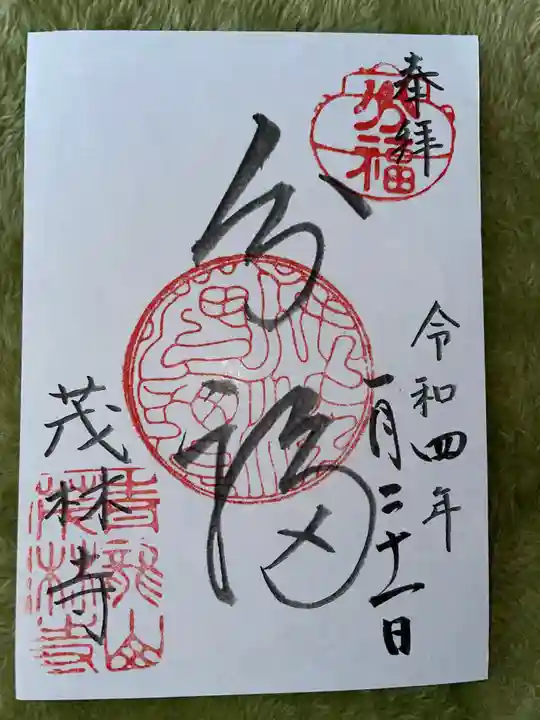 奉拝
分福
令和四年
一月二十一日
分福
茂林寺
青龍山
茂林寺